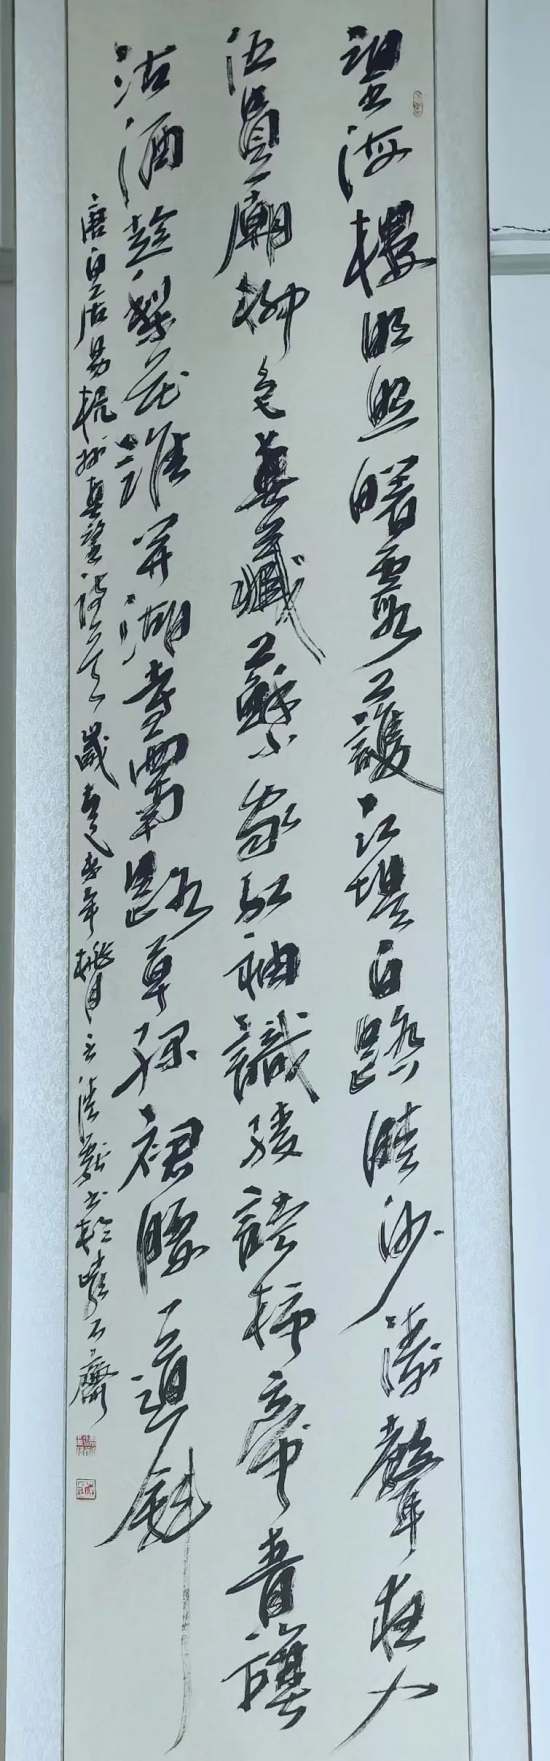 望海樓明照曙霞護江堤白踏晴沙濤聲夜入
伍員廟柳色春藏蘇小家紅袖織綾誇柿蒂青旗
沽酒趁梨花誰開湖寺西南路草綠裙腰一道斜
唐白居易杭州春望詩一首歲年月書於齋